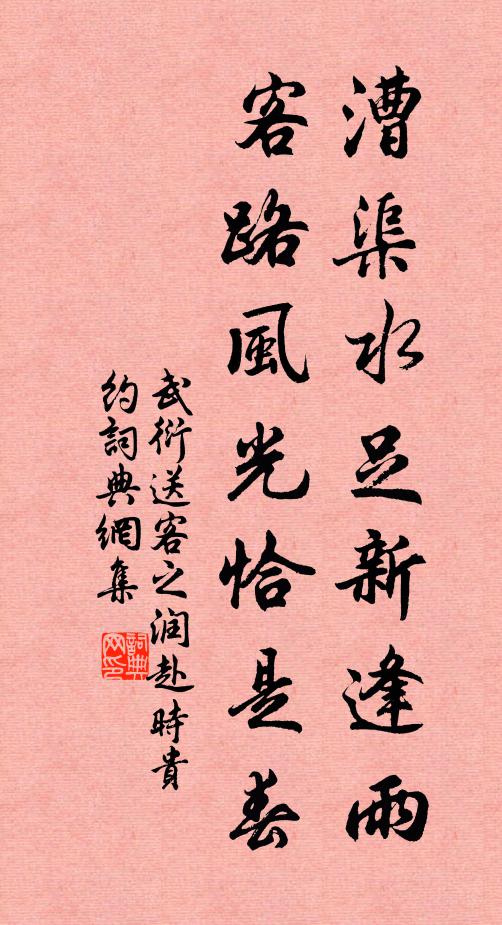 漕渠水足新逢雨
客路風光恰是春
武衍送客之润赴時貴
約詞典網集
詞典
网印